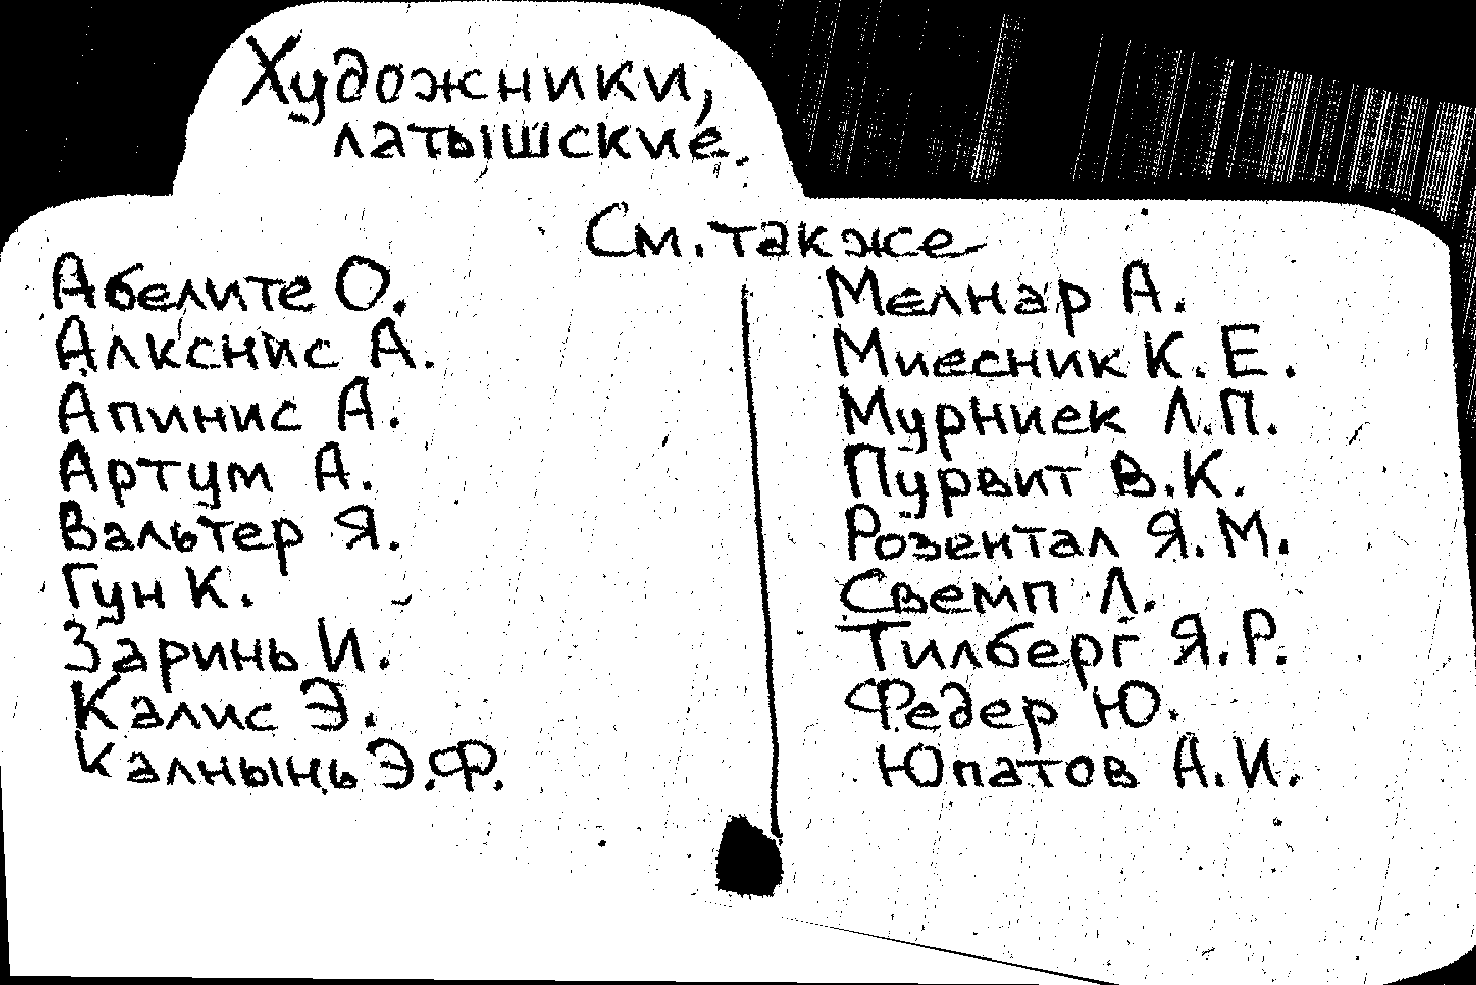 Художники,
латышские.
См. также
Абелите О.
Алкснис А.
Апинис А.
Артум А.
Вальтер Я.
Гун К.
Заринь И.
Калис Э.
Калнынь Э.Ф.
Мелнар А.
Миесник К. Е.
Мурниек Л.П.
Пурвит В.К.
Розентал Я.М.
Свемп Л.
Тилберг Я.Р.
Федер Ю.
Юпатов А.И.